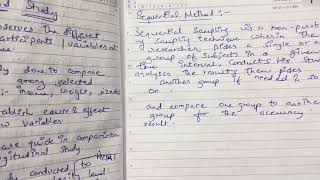 Study
observes the different
participants variables at
time
done to compare
among selected
income, weight, sizes
establish cause & effect
variables
are quick in comparison
longitudinal study
conducted to
level
Sequential Method :-
Sequential Sampling is a non-prob
Sampling technique where in the
researcher, picks a single or a
group of subjects in a given
time interval, Conducts his Study
analyses the results, then picks
another group if needed & so
on.
and compare one group to another
group for the accuracy
result.